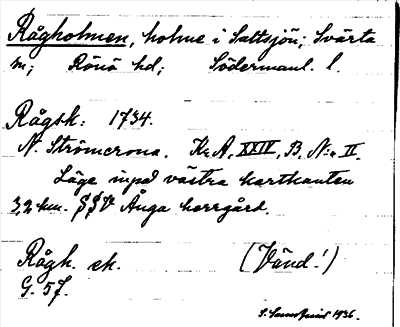 Rågholmen, holme i Saltsjön; Svärta
sn; Rönö hd; Södermanl. l.
Rågsk: 1734.
N. Strömcrona. Kr.A, XXIV, B, N:r II.
Läge inpå västra kartkanten
3,2 km. SSV Ånga herrgård.
Rågh. ek. (Vänd!)
G. 57.
1936.